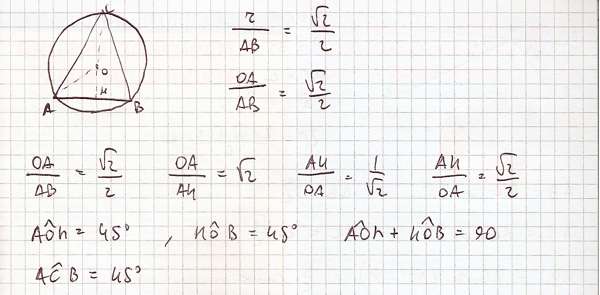 C
O
H
A B
r/AB = √2/2
OA/AB = √2/2
OA/AB = √2/2 OA/AH = √2 AH/OA = 1/√2 AH/OA = √2/2
AÔH = 45° , HÔB = 45° AÔH + HÔB = 90
AĈB = 45°